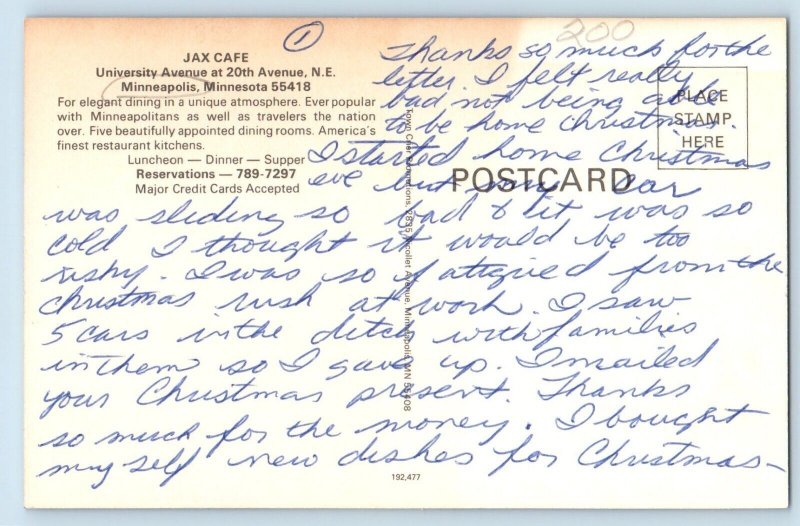 ①
200
JAX CAFE
University Avenue at 20th Avenue, N.E.
Minneapolis, Minnesota 55418
For elegant dining in a unique atmosphere. Ever popular
with Minneapolitans as well as travelers the nation
over. Five beautifully appointed dining rooms. America's
finest restaurant kitchens.
Luncheon — Dinner — Supper
Reservations — 789-7297
Major Credit Cards Accepted
PLACE
STAMP
HERE
POSTCARD
Town Crier 2835 Nicollet Avenue, Minneapolis, MN 55408
Thanks so much for the
letter. I felt really
bad not being able
to be home Christmas.
I started home Christmas
eve but my car
was sliding so bad & it was so
cold I thought it would be too
risky. I was so fatigued from the
Christmas rush at work. I saw
5 cars in the ditch with families
in them so I gave up. I mailed
your Christmas present. Thanks
so much for the money. I bought
my self new dishes for Christmas—
192,477